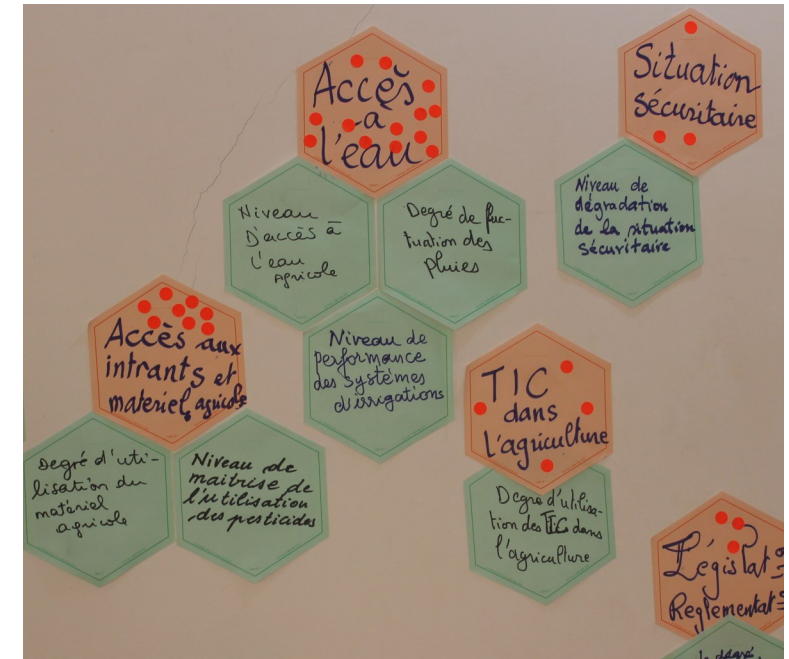 Accès
à
l'eau
Situation
sécuritaire
Niveau
D'accès à
l'eau
Agricole
Degré de fluc-
tuation des
pluies
Niveau de
dégradation
de la situation
sécuritaire
Accès aux
intrants et
materiel agricole
Niveau de
performance
des systèmes
d'irrigations
TIC
dans
l'agriculture
Degré d'uti-
lisation du
matériel
agricole
Niveau de
maitrise de
l'utilisation
des pesticides
Degre d'utilisa-
tion des TIC dans
l'agriculture
Législat°
Reglementat°
le degré